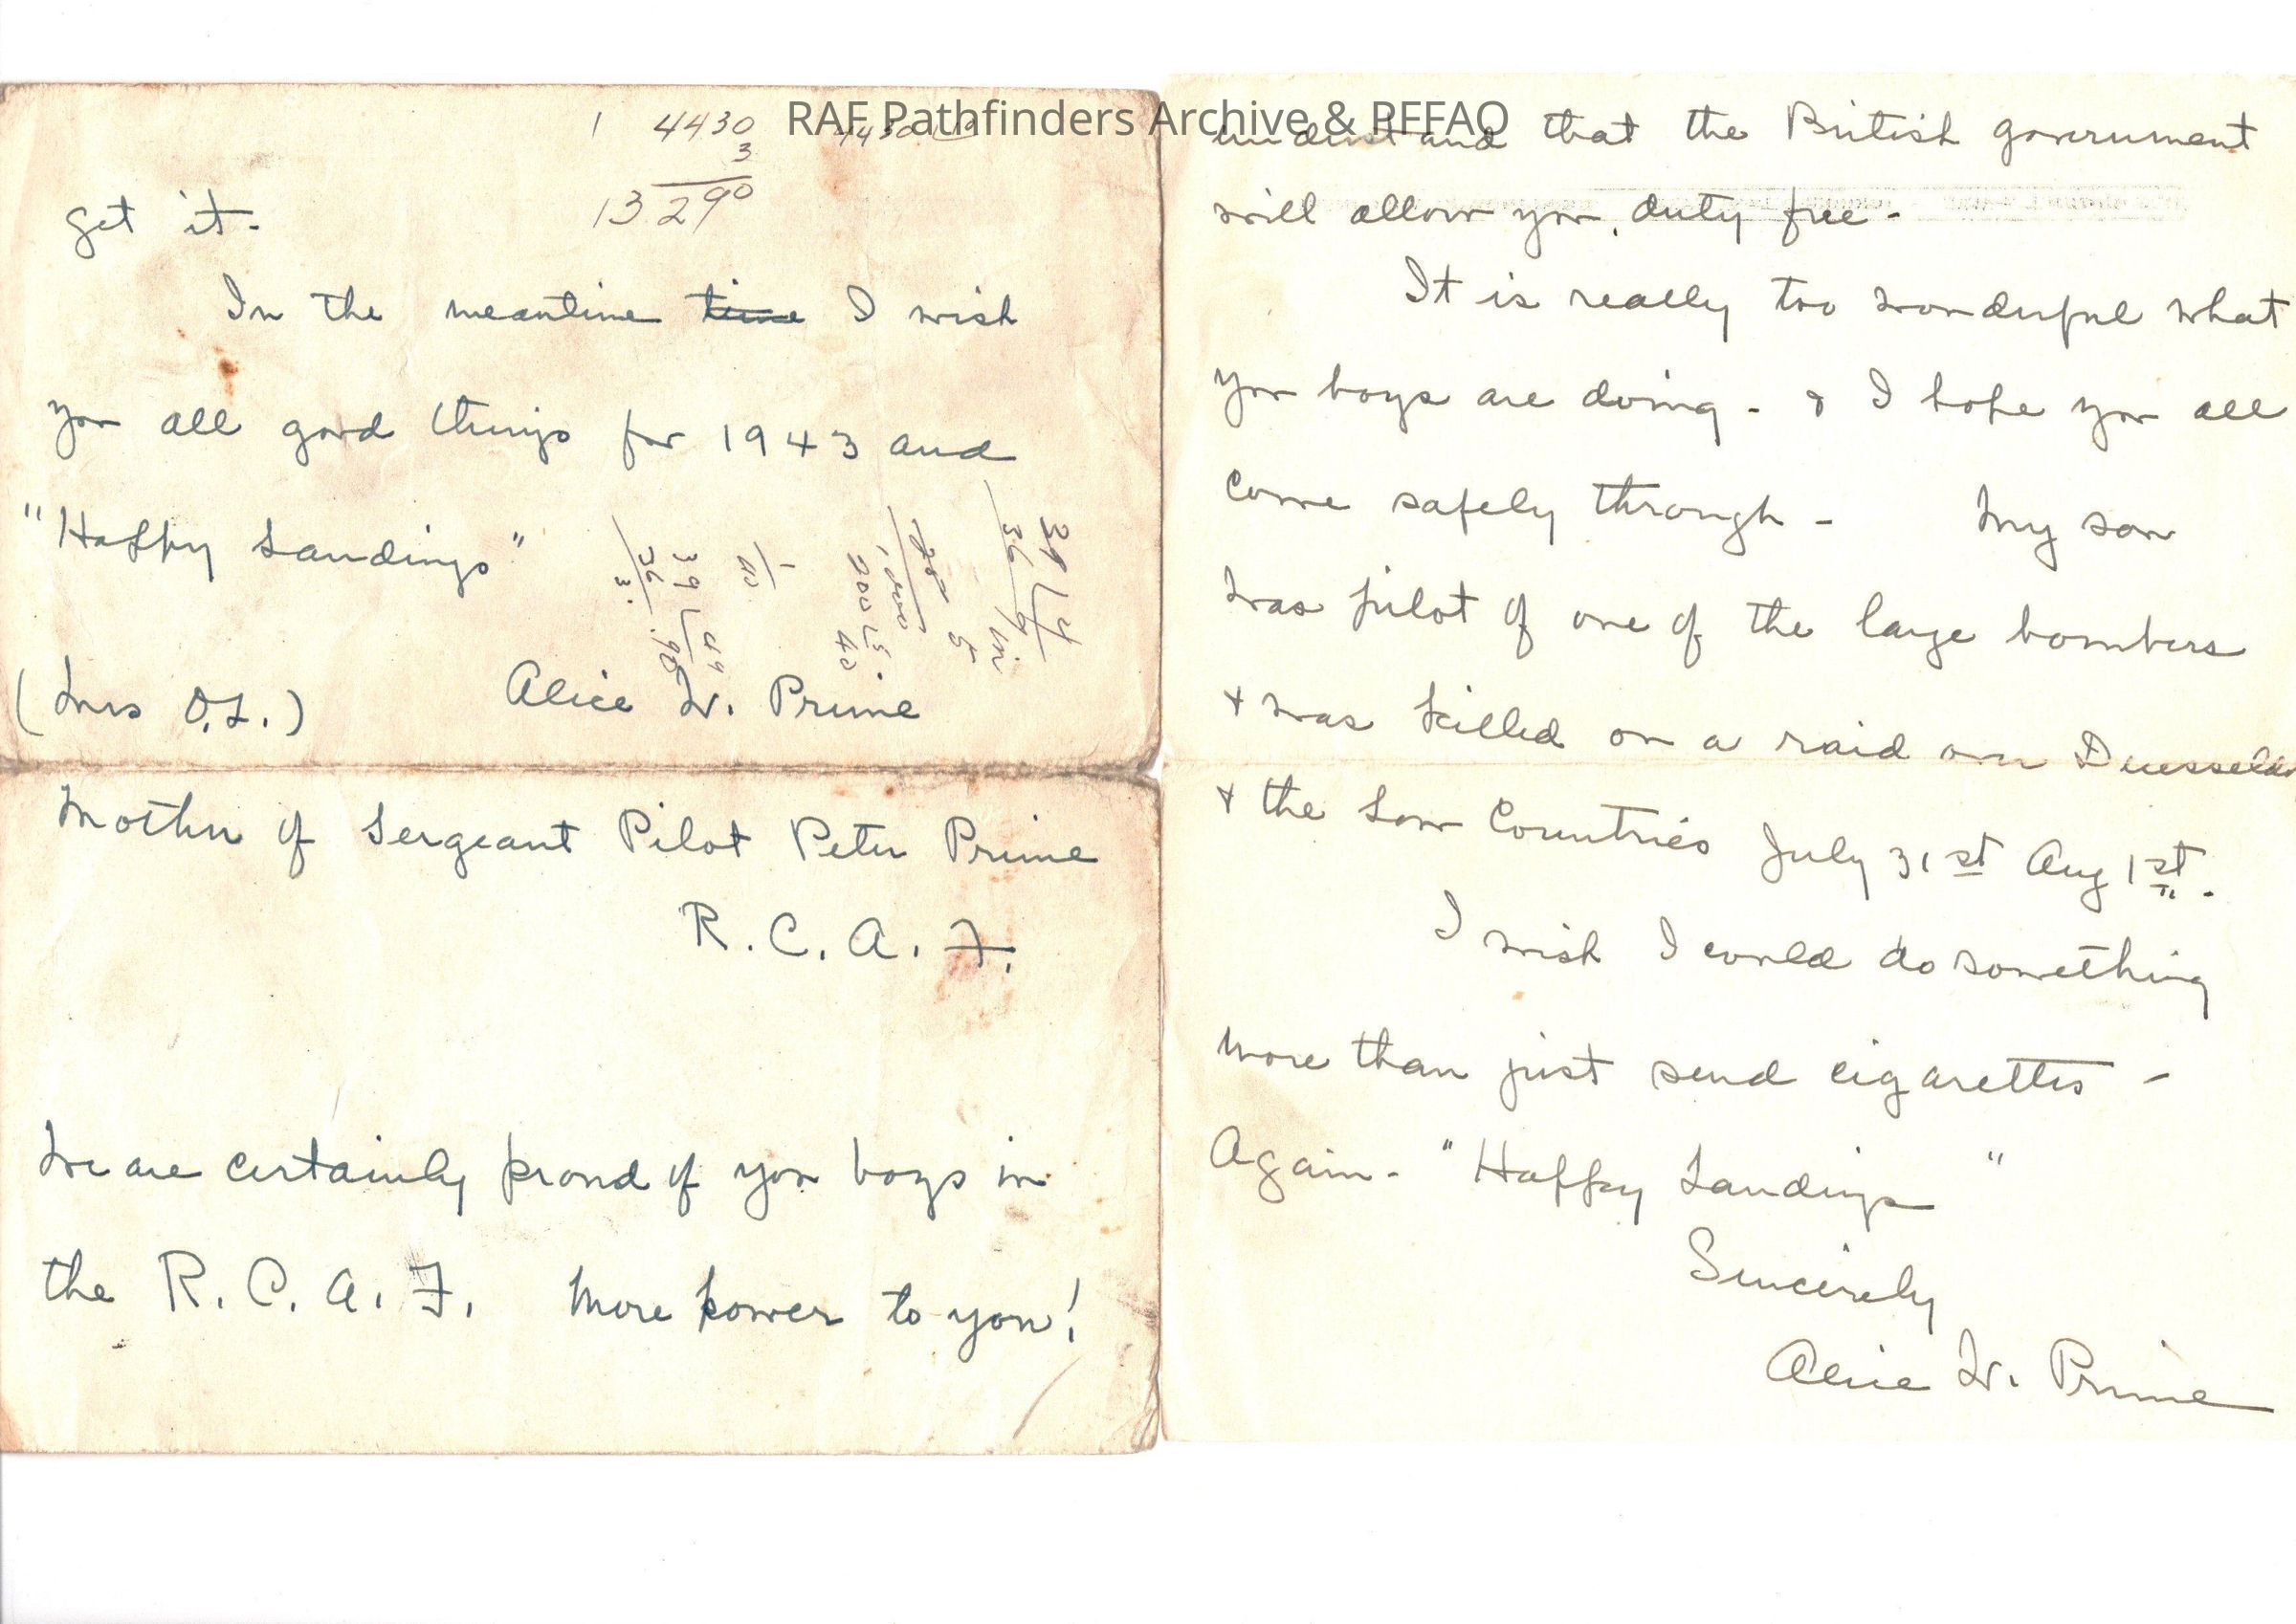 RAF Pathfinders Archive & PFFAQ
1 4430
3
13290
get it-
In the meantime time I wish
you all good things for 1943 and
"Happy Landings"
(Mrs O.L.) Alice W. Prime
Mother of Sergeant Pilot Peter Prime
R.C.A.F.
We are certainly proud of you boys in
the R.C.A.F. More power to you!
understand that the British government
will allow you, duty free-
It is really too wonderful what
you boys are doing - & I hope you all
come safely through - My son
was pilot of one of the large bombers
& was killed on a raid over Duesseldo
& the Low Countries July 31st Aug 1st.
I wish I could do something
more than just send cigarettes -
Again - "Happy Landings"
Sincerely
Alice W. Prime